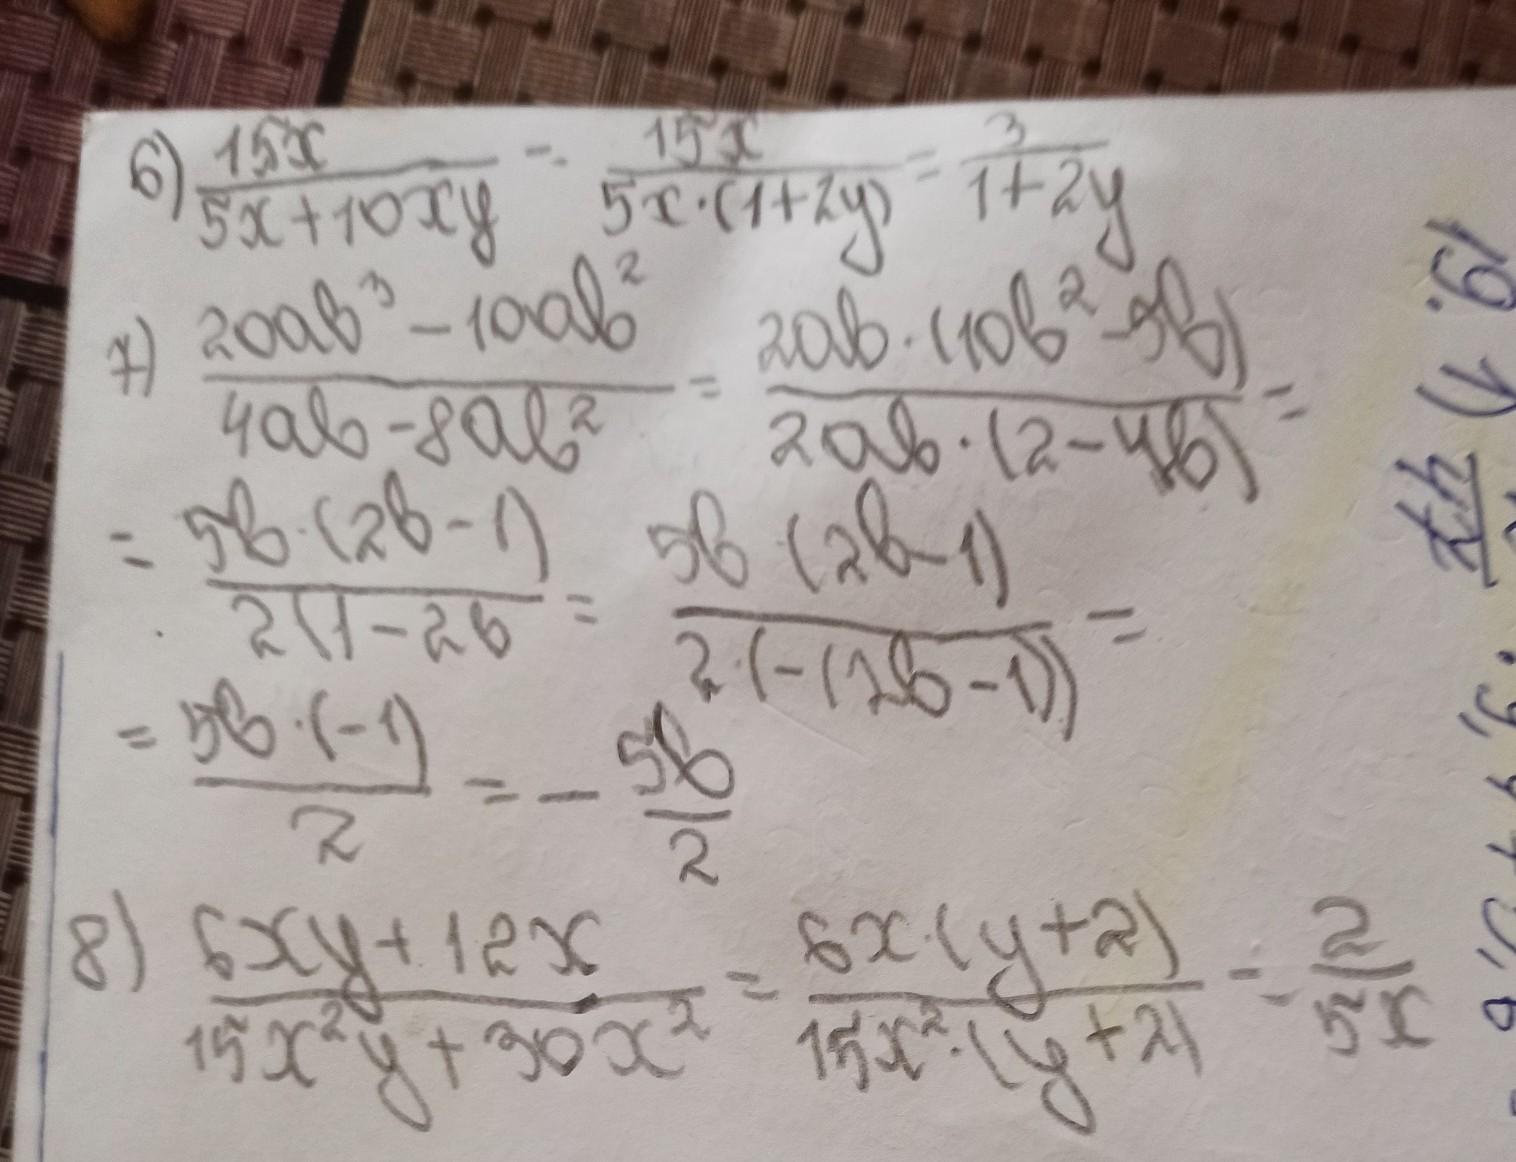 6) 15x/(5x+10xy) = 15x/(5x·(1+2y)) = 3/(1+2y)
7) (20ab³-10ab²)/(4ab-8ab²) = (2ab·(10b²-5b))/(2ab·(2-4b)) =
= (5b·(2b-1))/(2(1-2b) = (5b·(2b-1))/(2·(-(2b-1))) =
= (5b·(-1))/2 = -5b/2
8) (6xy+12x)/(15x²y+30x²) = (6x·(y+2))/(15x²·(y+2)) = 2/(5x)
19. 1)